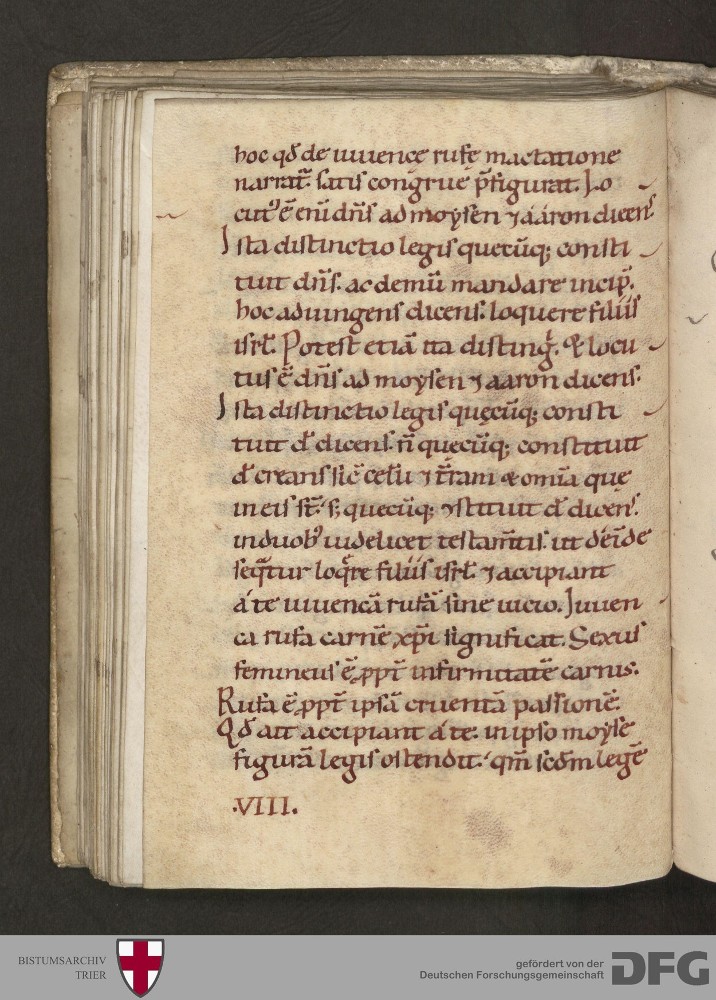 hoc qđ de iuuence rufe mactatione
narrat̄. satis congrue p̄figurat. Lo
cut᾽ ē eni dn̄s ad moysen ⁊ aaron dicens.
Ista distinctio legis quecūq; consti
tuit dn̄s. ac demū mandare incip̄.
hoc adiungens dicens. loquere filiis
isrl̄. Potest etiā ita distinḡ. & locu
tus ē dn̄s ad moysen ⁊ aaron dicens.
Ista distinctio legis quęcūq; consti
tuit dš dicens. n̄ quecūq; constituit
dš creans sic̄ celū ⁊ t̄ram & omīa quę
in eis st̄. s; quecūq; ↄstituit dš dicens.
in duob᾽ uidelicet testam̄tis. ut deīde
seq̄tur loq̄re filiis isrl̄. ⁊ accipiant
a te iuuencā rufā sine uicio. Iuuen
ca rufa carnē xp̄i significat. Sexus
femineus ē ꝓpt̄ infirmitatē carnis.
Rufa ē ꝓpt̄ ipsā cruentā passionē.
Qđ ait accipiant a te. in ipso moyse
figurā legis ostendit. qm̄ scđm legē
.VIII.
BISTUMSARCHIV
TRIER
gefördert von der
Deutschen Forschungsgemeinschaft
DFG